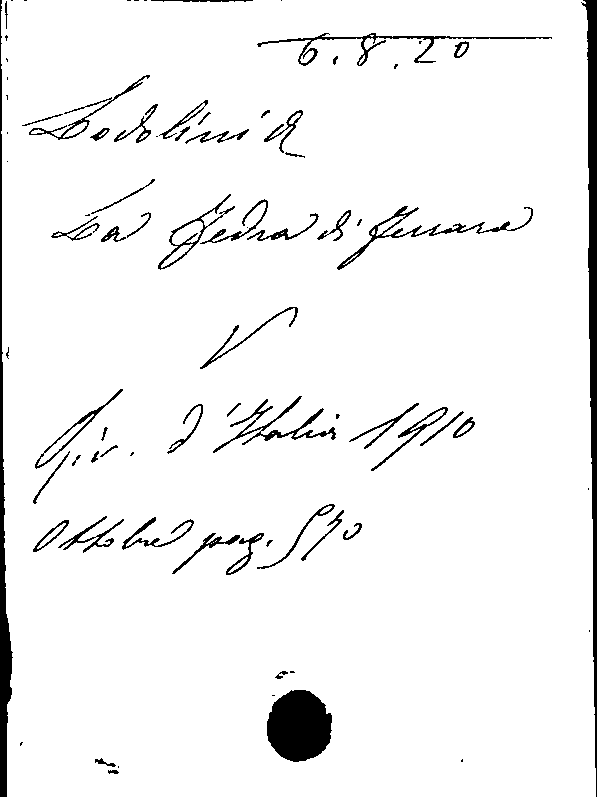 6.8.20
Lodolini A
La Fedra di Ferrara
V
Riv. d'Italia 1910
Ottobre pag. 570